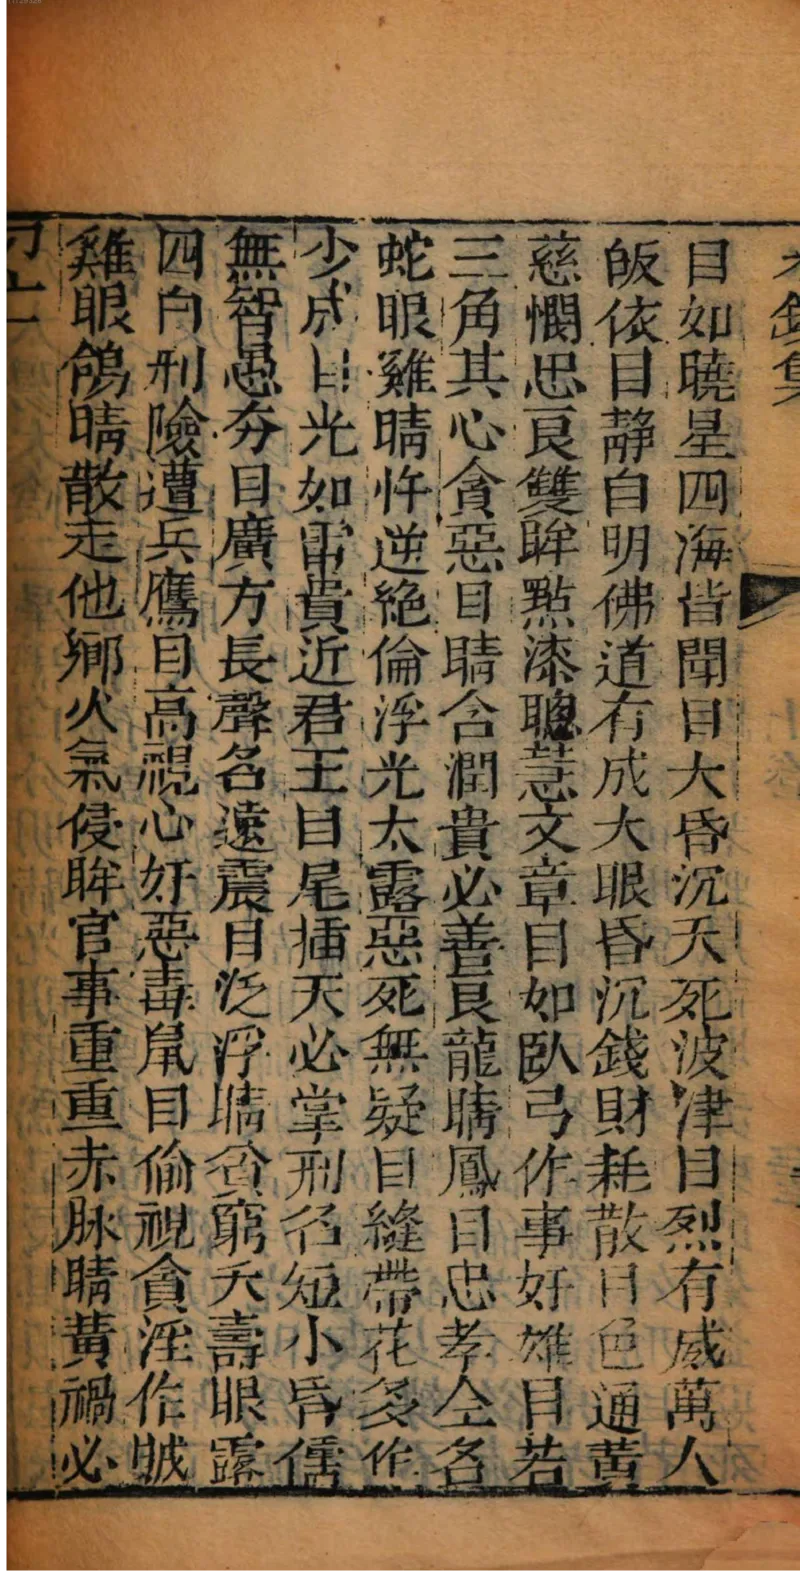 目如曉星四海皆聞目大昏沉夭死波津目烈有威萬人
皈依目静白明佛道有成大眼昏沉錢財耗散目色通黃
慈憫忠良雙眸點漆聰慧文章目如臥弓作事好雄目若
三角其心貪惡目睛含潤貴必善良龍睛鳳目忠孝仝名
蛇眼雞睛忤逆絕倫浮光太露惡死無疑目縫帶花多作
少成目光如雷貴近君王目尾插天必掌刑名短小昏儒
無智愚夯目廣方長聲名遠震目泛浮睛貧窮夭壽眼露
四白刑險遭兵鷹目高視心奸惡毒鼠目偷視貪淫作賊
雞眼鴿睛散走他鄉火氣侵眸官事重重赤脉睛黃禍必